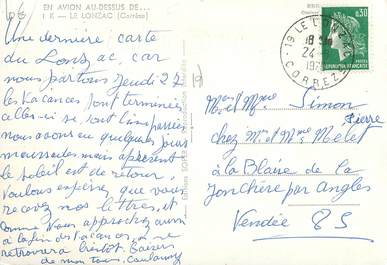 EN AVION AU-DESSUS DE...
1 K — LE LONZAC (Corrèze)
Une dernière carte
du Lonzac, car
nous partons Jeudi 27
les Vacances sont terminées
celles-ci se sont bien passées
nous avons eu quelques jours
maussades mais à présent
le soleil est de retour,
Voulons espérer que vous
recevez nos lettres, et
comme Vous approchez aussi
à la fin des Vacances, on se
retrouvera bientôt. Baisers
de nous tous.
19 LE LONZAC
18 H
24 - 
CORREZE
0,30
REPUBLIQUE FRANCAISE
Mr et Mme Simon
Pierre
chez Mr et Mme Melet
à la Blaire de la
Jonchère par Angles
Vendée 85